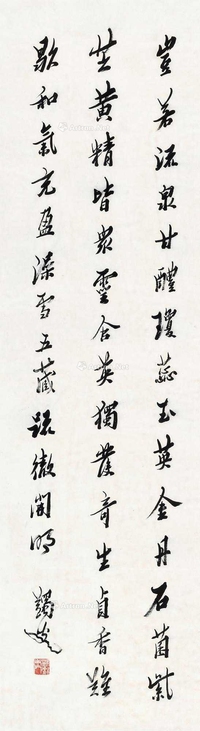 豈若流泉甘醴瓊蕊玉英金丹石菌紫
芝黄精皆衆靈含英獨發奇生貞香難
歇和氣充盈澡雪五藏疏徹開明
蠲叟